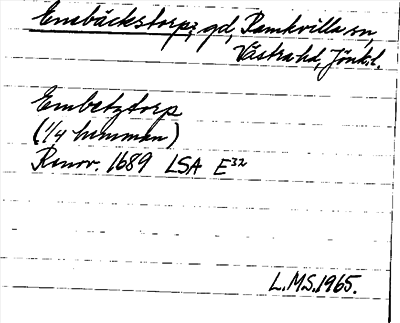 Enebäckstorp, gd, Ramkvilla sn,
Västra hd, Jönk. l.
Embetztorp
(1/4 hemman)
Renov. 1689 LSA E32
L.M.S. 1965.